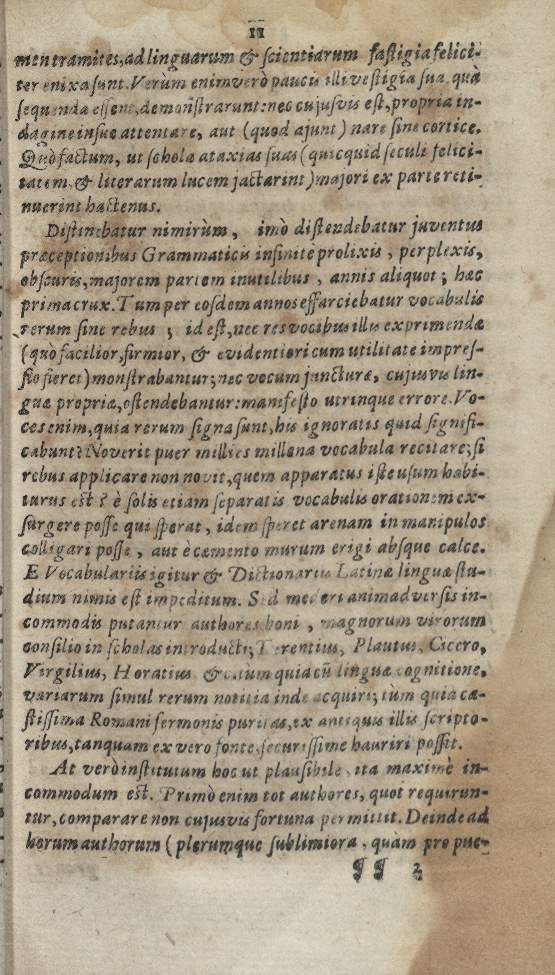 11
men tramites, ad linguarum & scientiarum fastigia felici-
ter enixa sunt. Verùm enimverò paucis illi vestigia sua, quà
sequenda essent, demonstrarunt: nec cujusvis est, propria in-
dagine insue attentare, aut (quod ajunt) nare sine cortice.
Quô factum, ut scholæ ataxias suas (quicquid seculi felici-
tatem, & literarum lucem jactarint) majori ex parte reti-
nuerint hactenus.
Distinebatur nimirùm, imò distendebatur juventus
præceptionibus Grammaticis infinitè prolixis, perplexis,
obscuris, majorem partem inutilibus, annis aliquot; hæc
prima crux. Tum per eosdem annos effarciebatur vocabulis
rerum sine rebus; id est, nec res vocibus illis exprimendæ
(quò facilior, firmior, & evidentiori cum utilitate impres-
sio fieret) monstrabantur; nec vocum juncturæ, cujusvis lin-
guæ propriæ, ostendebantur: manifesto utrinque errore. Vo-
ces enim, quia rerum signa sunt, his ignoratis quid signifi-
cabunt? Noverit puer millies millena vocabula recitare; si
rebus applicare non novit, quem apparatus iste usum habi-
turus est? è solis etiam separatis vocabulis orationem ex-
surgere posse qui sperat, idem speret arenam in manipulos
colligari posse, aut è cæmento murum erigi absque calce.
E Vocabulariis igitur & Dictionariis Latinæ linguæ stu-
dium nimis est impeditum. Sed mederi animadversis in-
commodis putantur authores boni, magnorum virorum
consilio in scholas introducti; Terentius, Plautus, Cicero,
Virgilius, Horatius &c. tùm quia cũ linguæ cognitione,
variarum simul rerum notitia inde acquiri; tùm quia ca-
stissima Romani sermonis puritas, ex antiquis illis scripto-
ribus, tanquam ex vero fonte, securissimè hauriri possit.
At verò institutum hoc ut plausibile, ita maximè in-
commodum est. Primò enim tot authores, quot requirun-
tur, comparare non cujusvis fortuna permittit. Deinde ad
horum authorum (plerumque sublimiora, quàm pro pue-
¶ ¶ 2